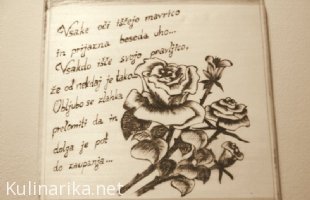 Vsake oči iščejo mavrico
in prijazna beseda uho...
Vsakdo išče svojo pravljico,
že od nekdaj je tako.
Obljubo se zlahka
prelomiti da in
dolga je pot
do zaupanja...
Kulinarika.net